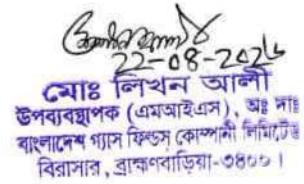 22-08-202
মোঃ লিখন আলী
উপব্যবস্থাপক (এমআইএস), অঃ দাঃ
বাংলাদেশ গ্যাস ফিল্ডস্ কোম্পানী লিমিটেড
বিরাসার, ব্রাহ্মণবাড়িয়া-৩৪০০।